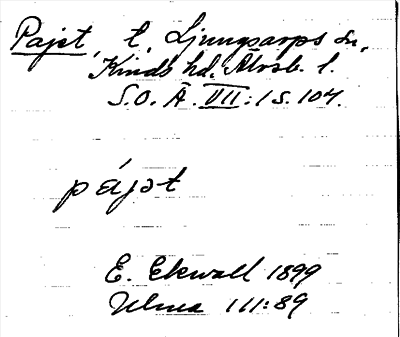 Pajet, t, Ljungsarps sn,
Kinds hd. Älvsb. l.
S.O. Ä. VII:1 s. 104.
pájət
E. Ekwall 1899
Ulma 111:89